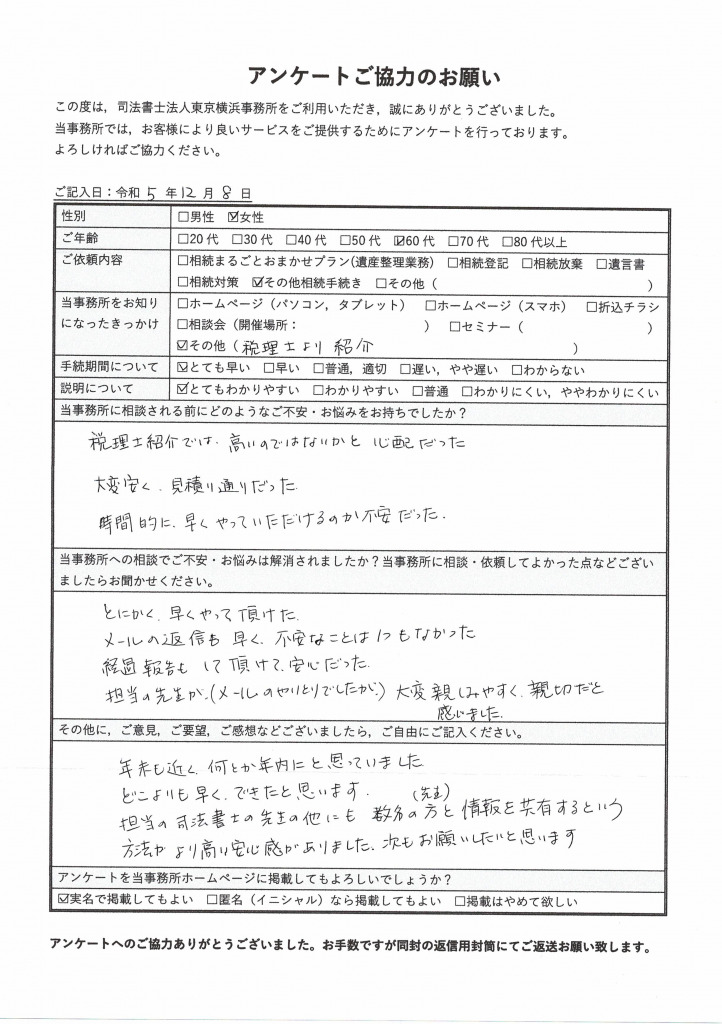 アンケートご協力のお願い
この度は，司法書士法人東京横浜事務所をご利用いただき，誠にありがとうございました。
当事務所では，お客様により良いサービスをご提供するためにアンケートを行っております。
よろしければご協力ください。
ご記入日：令和 5 年 12 月 8 日
性別 □男性 ☑女性
ご年齢 □20代 □30代 □40代 □50代 ☑60代 □70代 □80代以上
ご依頼内容 □相続まるごとおまかせプラン(遺産整理業務) □相続登記 □相続放棄 □遺言書
□相続対策 ☑その他相続手続き □その他（ ）
当事務所をお知り □ホームページ（パソコン，タブレット） □ホームページ（スマホ） □折込チラシ
になったきっかけ □相談会（開催場所： ） □セミナー（ ）
☑その他（税理士より 紹介 ）
手続期間について ☑とても早い □早い □普通，適切 □遅い，やや遅い □わからない
説明について ☑とてもわかりやすい □わかりやすい □普通 □わかりにくい，ややわかりにくい
当事務所に相談される前にどのようなご不安・お悩みをお持ちでしたか？
税理士紹介では、高いのではないかと 心配だった
大変安く、見積り通りだった.
時間的に、早くやっていただけるのか不安だった.
当事務所への相談でご不安・お悩みは解消されましたか？当事務所に相談・依頼してよかった点などござい
ましたらお聞かせください。
とにかく、早くやって頂けた.
メールの返信も 早く、不安なことは1つもなかった
経過報告も して頂けて、安心だった.
担当の先生が、(メールのやりとりでしたが) 大変親しみやすく、親切だと
感じました.
その他に，ご意見，ご要望，ご感想などございましたら，ご自由にご記入ください。
年末も近く、何とか年内にと思っていました
どこよりも早く、できたと思います.
担当の司法書士の先生の他にも 数名の方(先生)と情報を共有するという
方法が より高い安心感がありました、次もお願いしたいと思います
アンケートを当事務所ホームページに掲載してもよろしいでしょうか？
☑実名で掲載してもよい □匿名（イニシャル）なら掲載してもよい □掲載はやめて欲しい
アンケートへのご協力ありがとうございました。お手数ですが同封の返信用封筒にてご返送お願い致します。